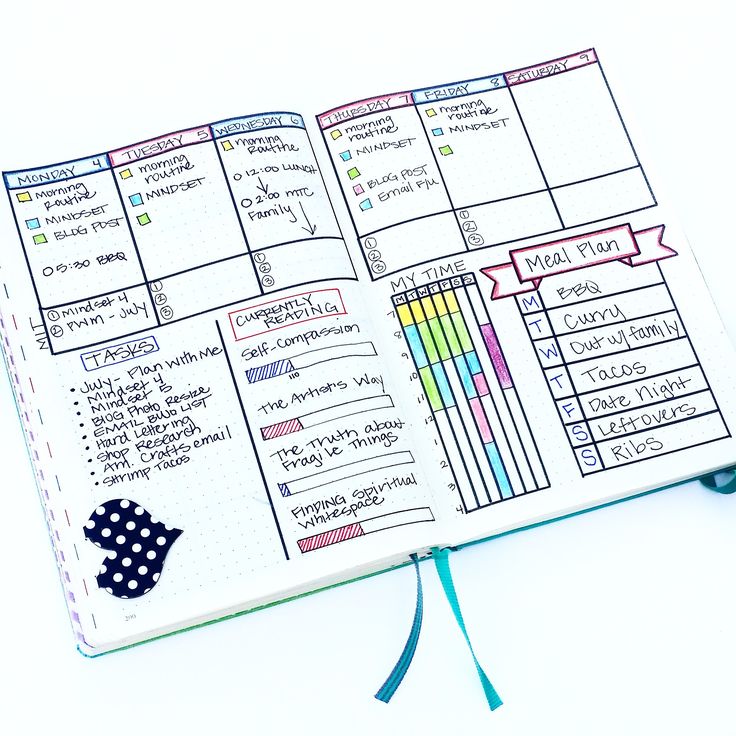 MONDAY 4
morning
routine
MINDSET
BLOG POST
5:30 BBQ
① Mindset 4
② PWM - July
TUESDAY 5
morning
routine
MINDSET
①
②
③
WEDNESDAY 6
morning
routine
12:00 LUNCH
2:00 MTC
Family
①
②
③
THURSDAY 7
morning
routine
MINDSET
BLOG POST
Email F/U
①
②
③
FRIDAY 8
morning
routine
MINDSET
①
②
③
SATURDAY 9
MIT
TASKS
• July - Plan With Me
• Mindset 4
• Mindset 5
• BLOG Photo Resize
• EMAIL BUJO LIST
• Hard Lettering
• Shop Research
• Am. Crafts email
• Shrimp Tacos
CURRENTLY
READING
Self-Compassion
110
The Artist's Way
The Truth about
Fragile Things
FINDING Spiritual
Whitespace
MY TIME
M T W T F S S
7
8
9
10
11
12
1
2
3
4
Meal Plan
M BBQ
T Curry
W Out w/family
T Tacos
F Date Night
S Leftovers
S Ribs
200